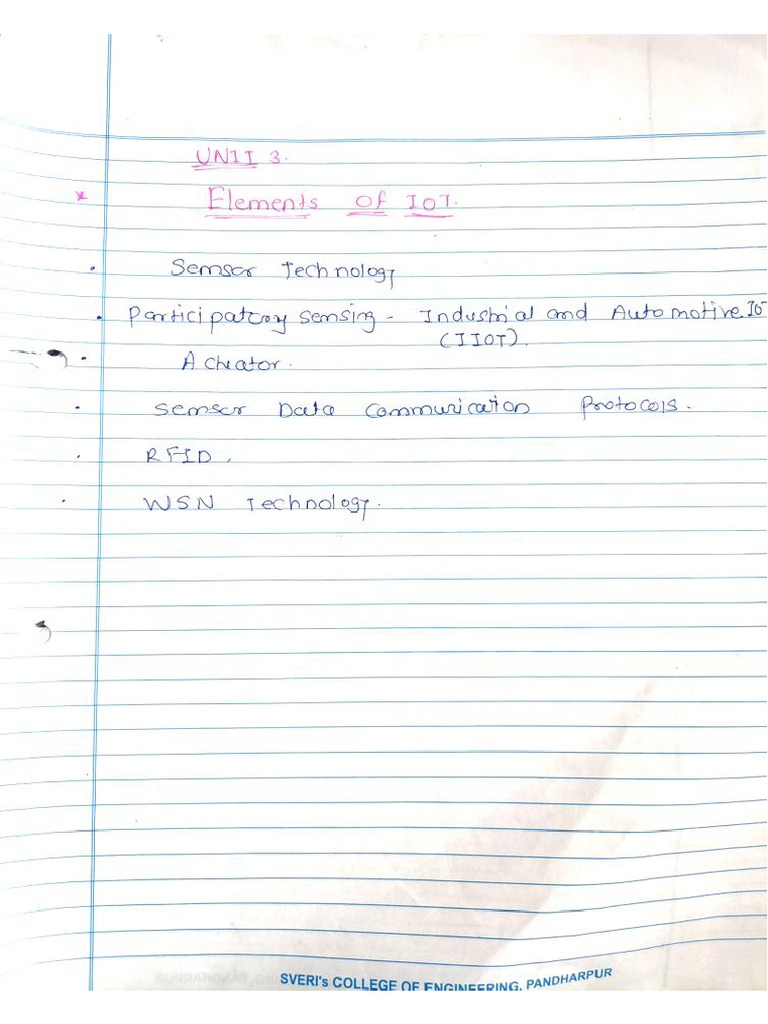 UNIT 3.
* Elements of IOT.
• Sensor Technology
• Participatory sensing - Industrial and Automotive IO
(IIOT).
• Actuator.
• Sensor Data Communication Protocols.
• RFID.
• WSN Technology.
SVERI's COLLEGE OF ENGINEERING, PANDHARPUR